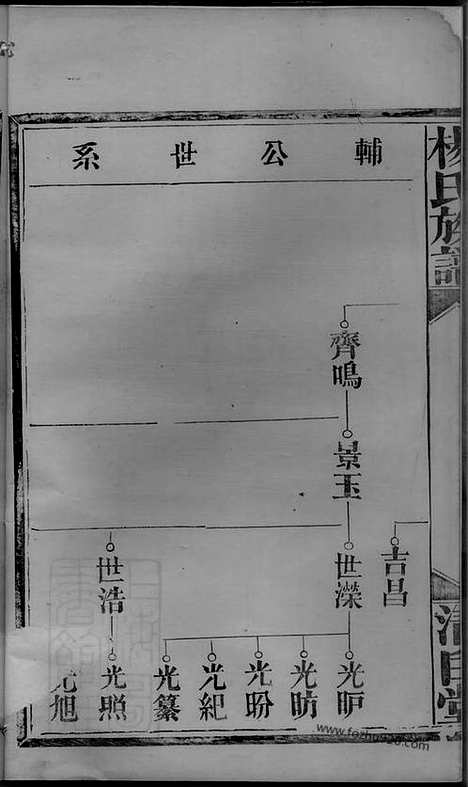 楊氏族譜
清白堂
輔公世系
齊鳴
景玉
吉昌
世濼
世浩
光昈
光昉
光昐
光紀
光纂
光照
光旭